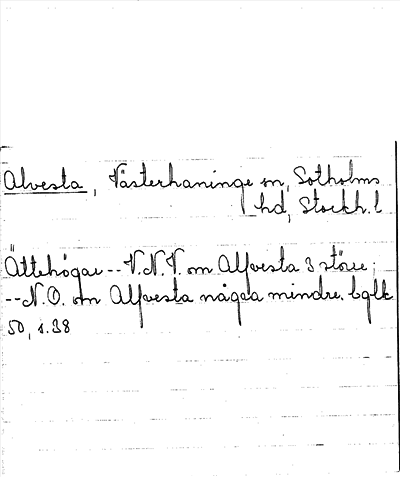 Alvesta, Västerhaninge sn, Sotholms
hd, Stockh. l
Ättehögar -- V.N.V. om Alfvesta 3 större;
-- N.O. om Alfvesta några mindre. bglk
50, s. 38